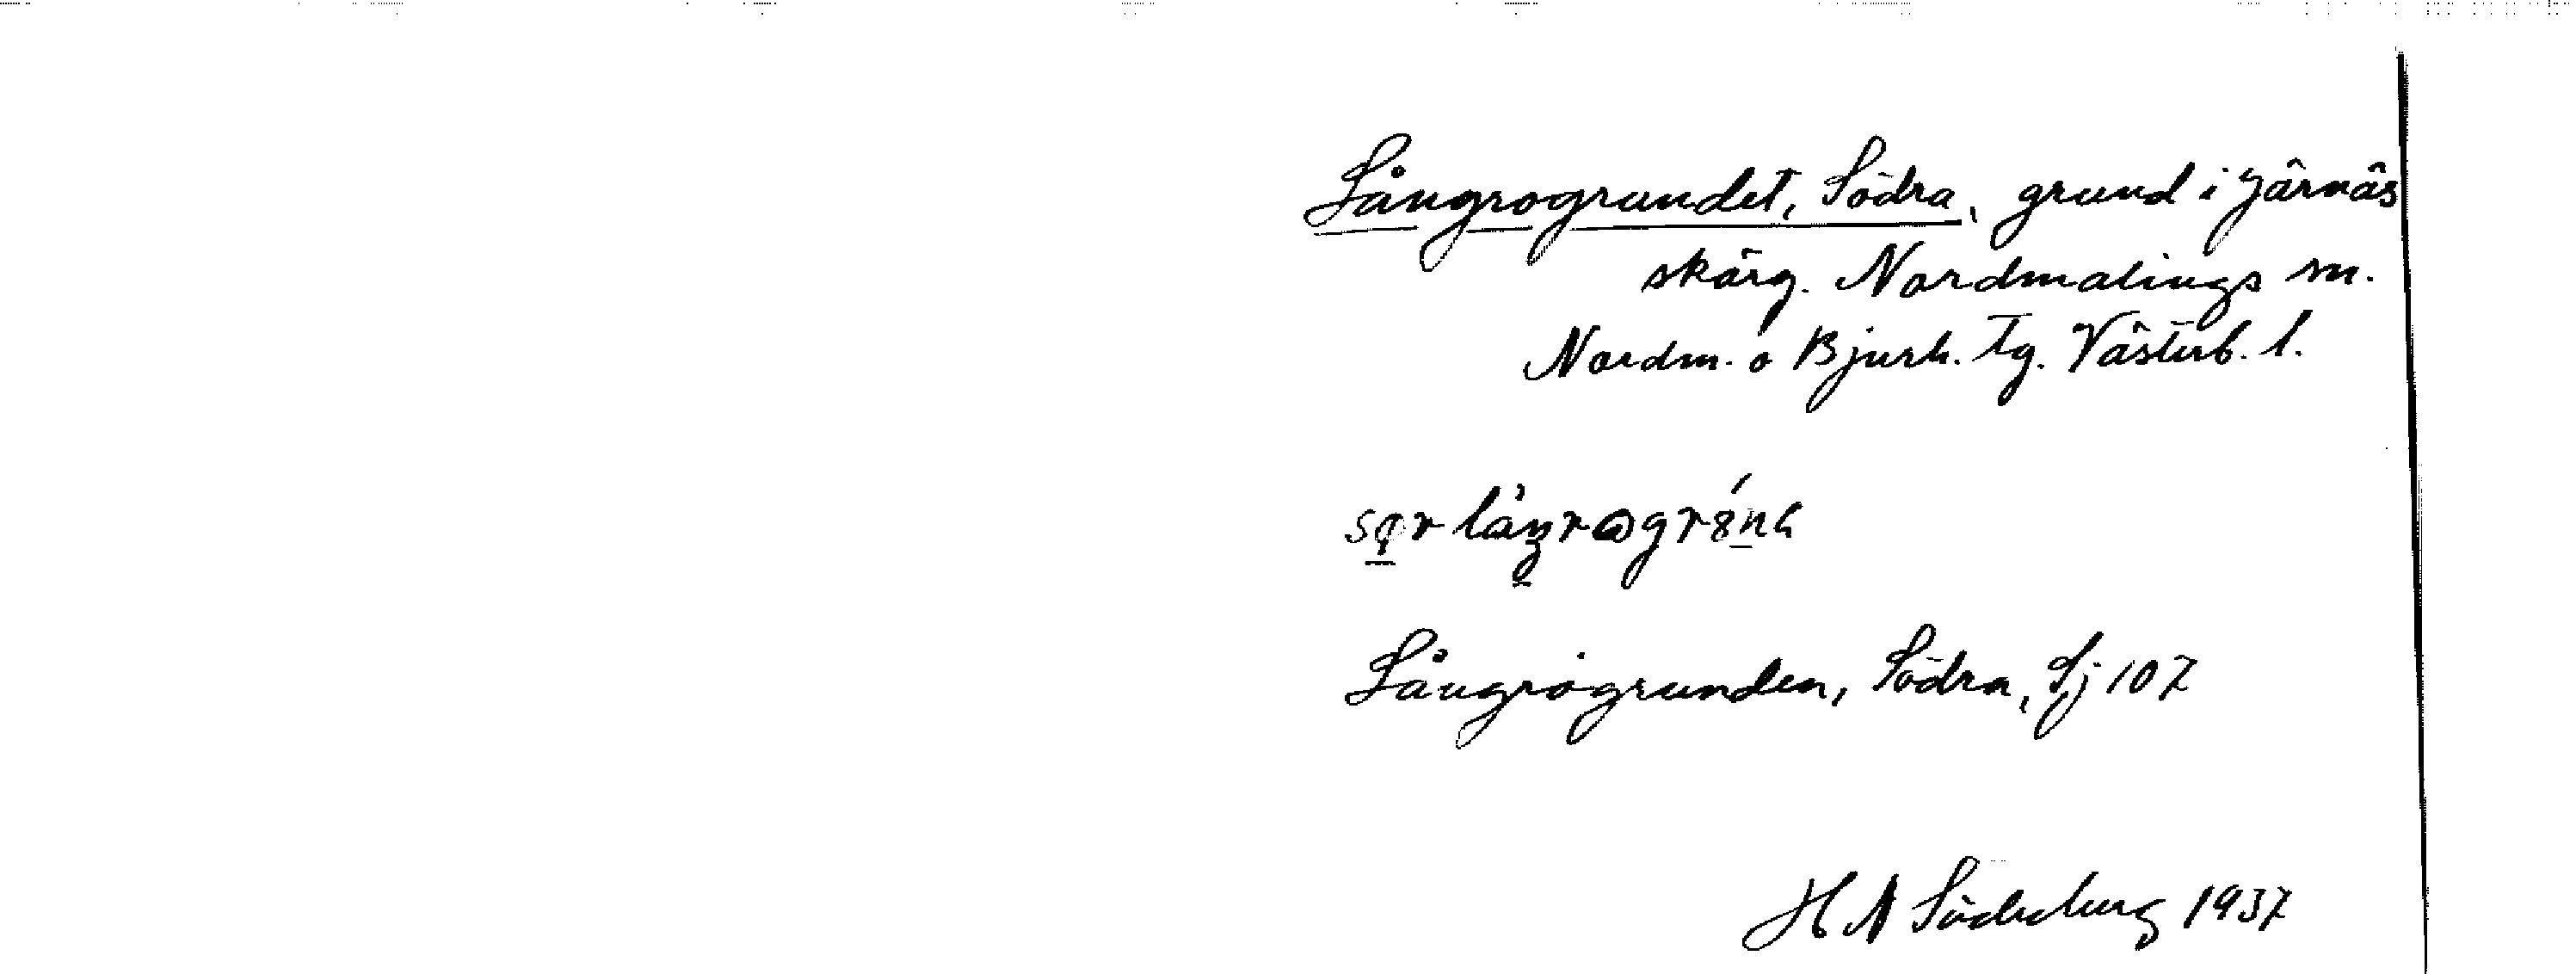 Långrogrundet, Södra, grund i Järnäs
skärg. Nordmalings sn.
Nordm. o Bjurh. tg. Västerb. l.
Långrögrunden, Södra, Sj 107
H N Söderberg 1937